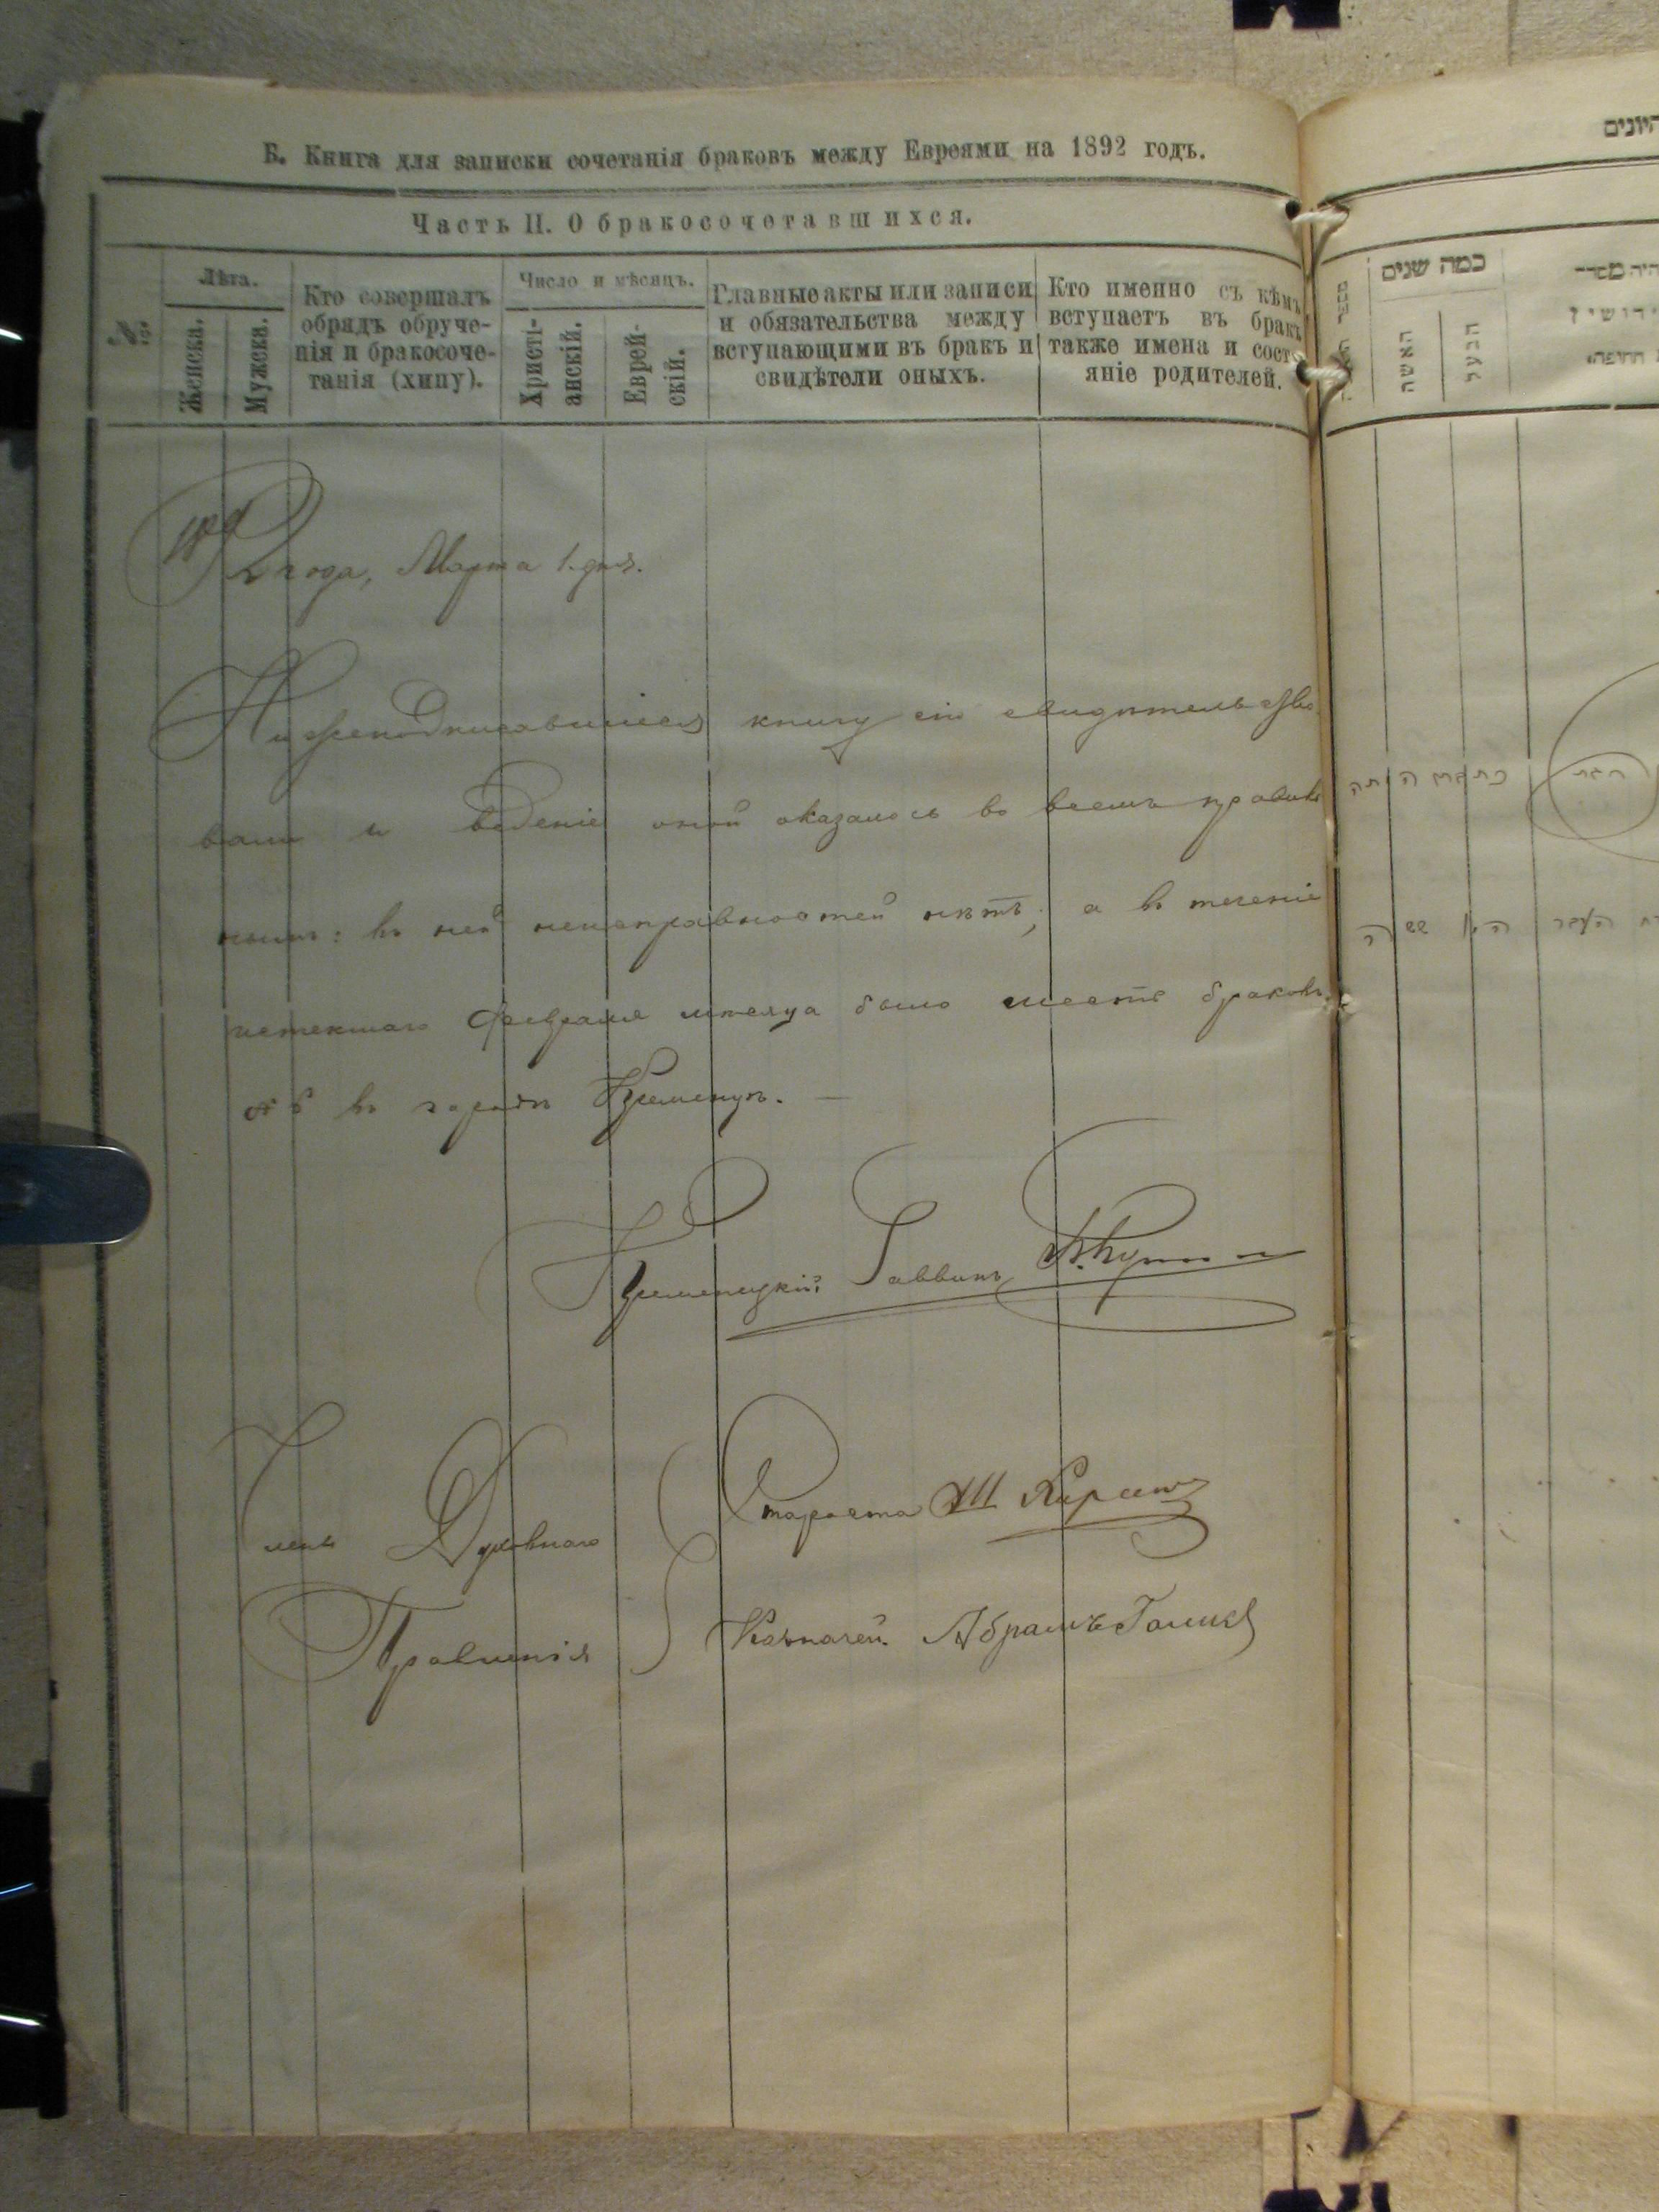 Б. Книга для записки сочетанія браковъ между Евреями на 1892 годъ.
Часть II. О бракосочетавшихся.
№
Лѣта.
Женска.
Мужска.
Кто совершалъ
обрядъ обруче-
нія и бракосоче-
танія (хипу).
Число и мѣсяцъ.
Христі-
анскій.
Еврей-
скій.
Главные акты или записи
и обязательства между
вступающими въ бракъ и
свидѣтели оныхъ.
Кто именно съ кѣмъ
вступаетъ въ бракъ
также имена и сост-
яніе родителей.
года, Марта 1 дня.
Нижеподписавшіеся книгу сію свидѣтельство
вали и веденіе оной оказалось во всемъ правиль
нымъ: въ ней неисправностей нѣтъ; а въ теченіе
истекшаго Февраля мѣсяца было шесть браковъ
№ 6 въ городѣ Кременцѣ. —
Кременецкій Раввинъ
Члены Духовнаго
Правленія
Староста Ш
Казначей Абрамъ
היונים
כמה שנים
האשה
הבעל
היה מסדר